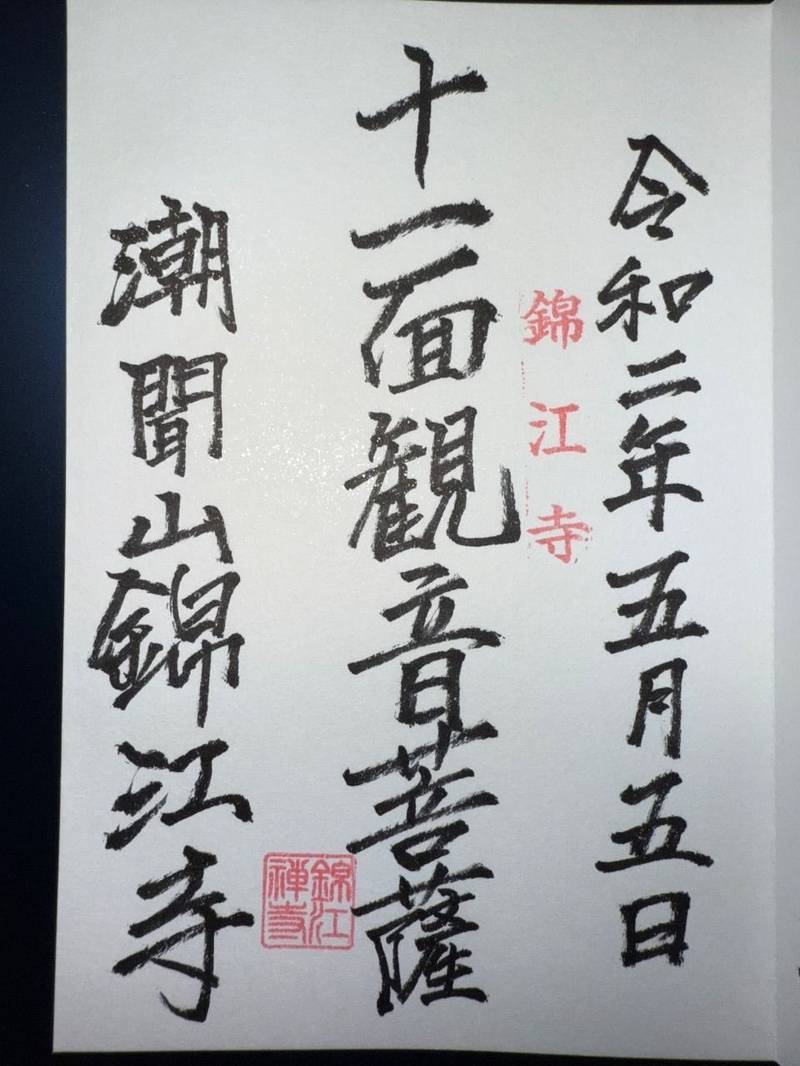 令和二年五月五日
錦江寺
十一面観音菩薩
錦江禅寺
潮聞山錦江寺